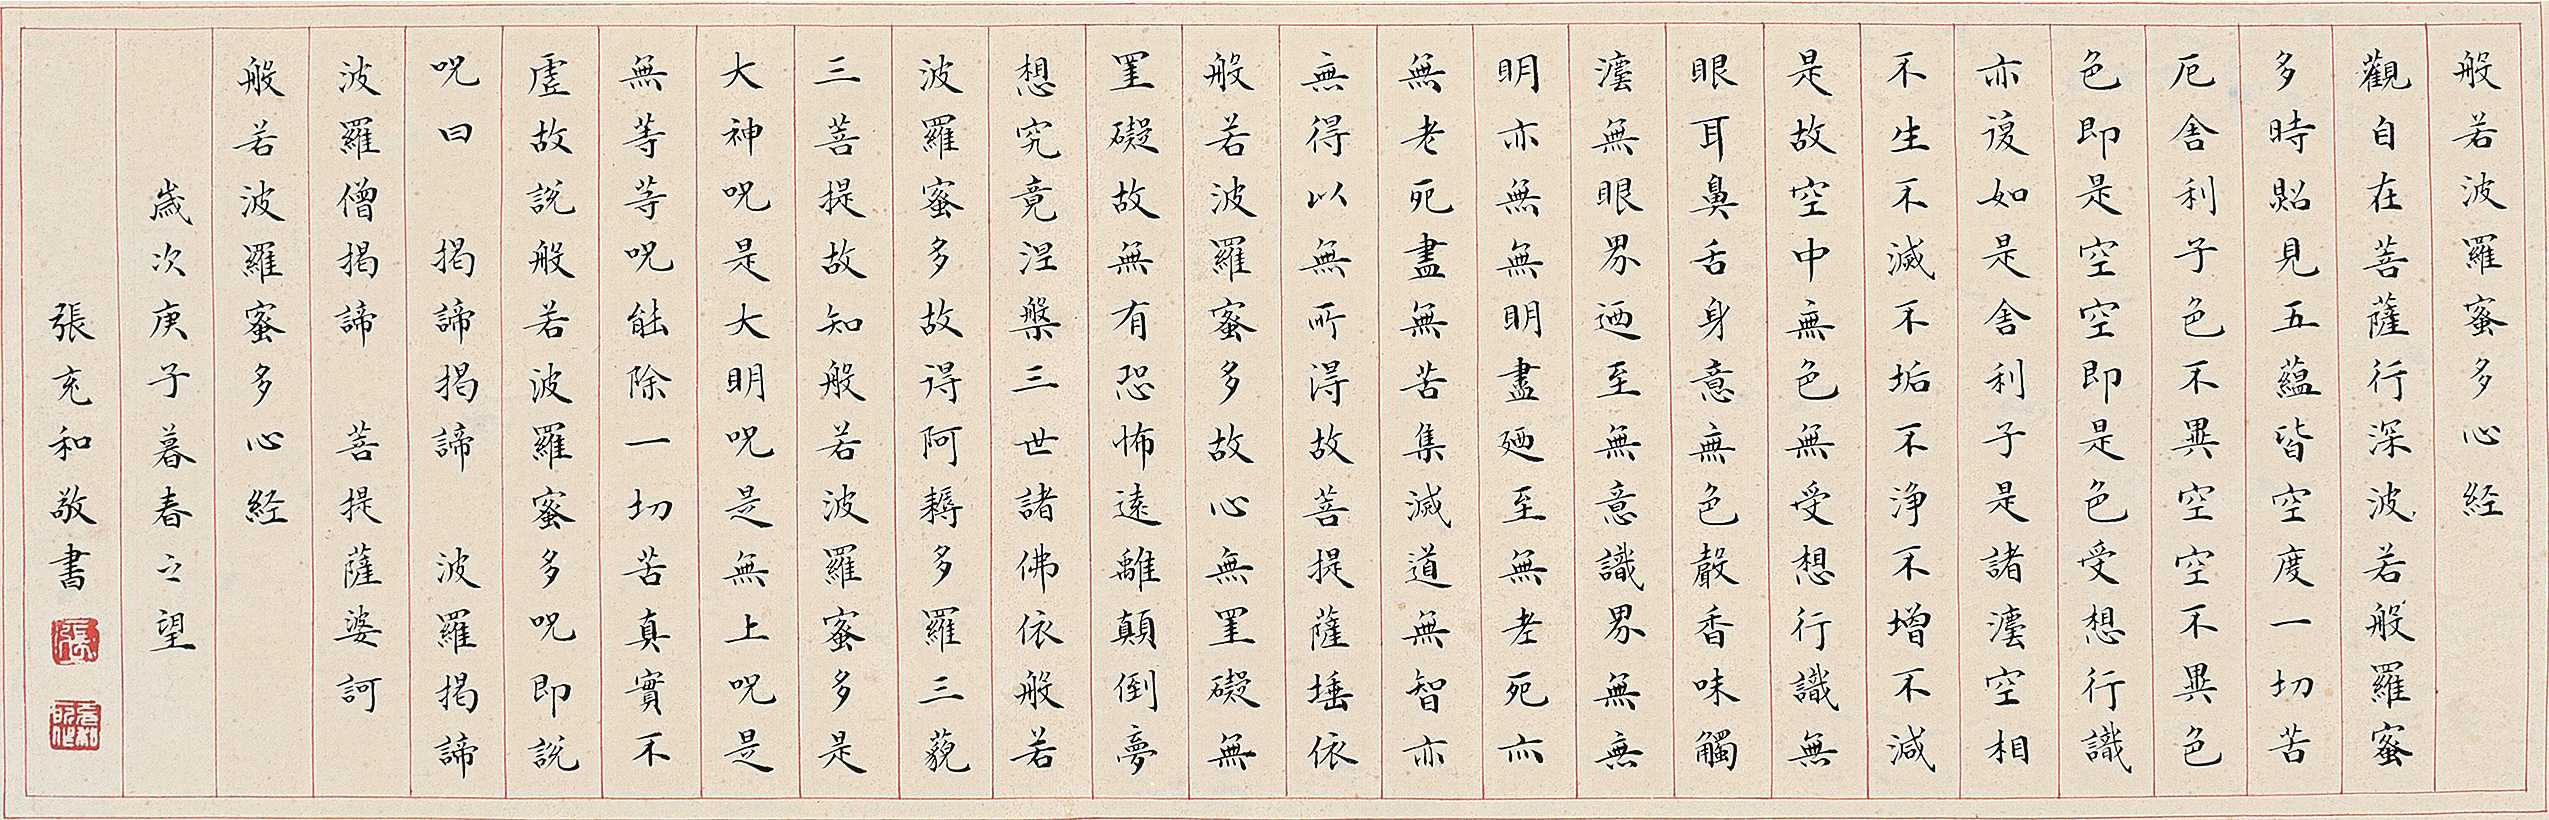 般若波羅蜜多心経
觀自在菩薩行深波若般羅蜜
多時照見五蘊皆空度一切苦
厄舍利子色不異空空不異色
色即是空空即是色受想行識
亦復如是舍利子是諸灋空相
不生不滅不垢不淨不增不減
是故空中無色無受想行識無
眼耳鼻舌身意無色聲香味觸
灋無眼界迺至無意識界無無
明亦無無明盡廼至無老死亦
無老死盡無苦集滅道無智亦
無得以無所得故菩提薩埵依
般若波羅蜜多故心無罣礙無
罣礙故無有恐怖遠離顛倒夢
想究竟涅槃三世諸佛依般若
波羅蜜多故得阿耨多羅三藐
三菩提故知般若波羅蜜多是
大神呪是大明呪是無上呪是
無等等呪能除一切苦真實不
虛故說般若波羅蜜多呪即說
呪曰 揭諦揭諦 波羅揭諦
波羅僧揭諦 菩提薩婆訶
般若波羅蜜多心経
歲次庚子暮春之望
張充和敬書